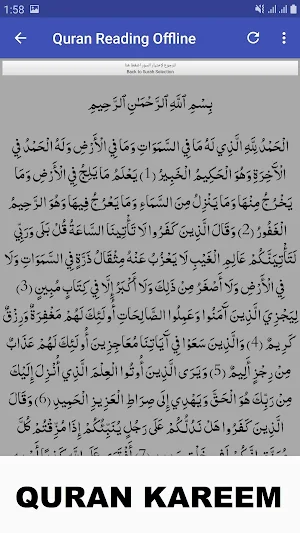 1:58
Quran Reading Offline
Back to Surah Selection
بِسْمِ اللَّهِ الرَّحْمَٰنِ الرَّحِيمِ
الْحَمْدُ لِلَّهِ الَّذِي لَهُ مَا فِي السَّمَوَاتِ وَمَا فِي الْأَرْضِ وَلَهُ الْحَمْدُ فِي
الْآخِرَةِ وَهُوَ الْحَكِيمُ الْخَبِيرُ (1) يَعْلَمُ مَا يَلِجُ فِي الْأَرْضِ وَمَا
يَخْرُجُ مِنْهَا وَمَا يَنْزِلُ مِنَ السَّمَاءِ وَمَا يَعْرُجُ فِيهَا وَهُوَ الرَّحِيمُ
الْغَفُورُ (2) وَقَالَ الَّذِينَ كَفَرُوا لَا تَأْتِينَا السَّاعَةُ قُلْ بَلَى وَرَبِّي
لَتَأْتِيَنَّكُمْ عَالِمِ الْغَيْبِ لَا يَعْزُبُ عَنْهُ مِثْقَالُ ذَرَّةٍ فِي السَّمَوَاتِ وَلَا
فِي الْأَرْضِ وَلَا أَصْغَرُ مِنْ ذَلِكَ وَلَا أَكْبَرُ إِلَّا فِي كِتَابٍ مُبِينٍ (3)
لِيَجْزِيَ الَّذِينَ آمَنُوا وَعَمِلُوا الصَّالِحَاتِ أُولَئِكَ لَهُمْ مَغْفِرَةٌ وَرِزْقٌ
كَرِيمٌ (4) وَالَّذِينَ سَعَوْا فِي آيَاتِنَا مُعَاجِزِينَ أُولَئِكَ لَهُمْ عَذَابٌ
مِنْ رِجْزٍ أَلِيمٌ (5) وَيَرَى الَّذِينَ أُوتُوا الْعِلْمَ الَّذِي أُنْزِلَ إِلَيْكَ
مِنْ رَبِّكَ هُوَ الْحَقَّ وَيَهْدِي إِلَى صِرَاطِ الْعَزِيزِ الْحَمِيدِ (6) وَقَالَ
الَّذِينَ كَفَرُوا هَلْ نَدُلُّكُمْ عَلَى رَجُلٍ يُنَبِّئُكُمْ إِذَا مُزِّقْتُمْ كُلَّ
QURAN KAREEM